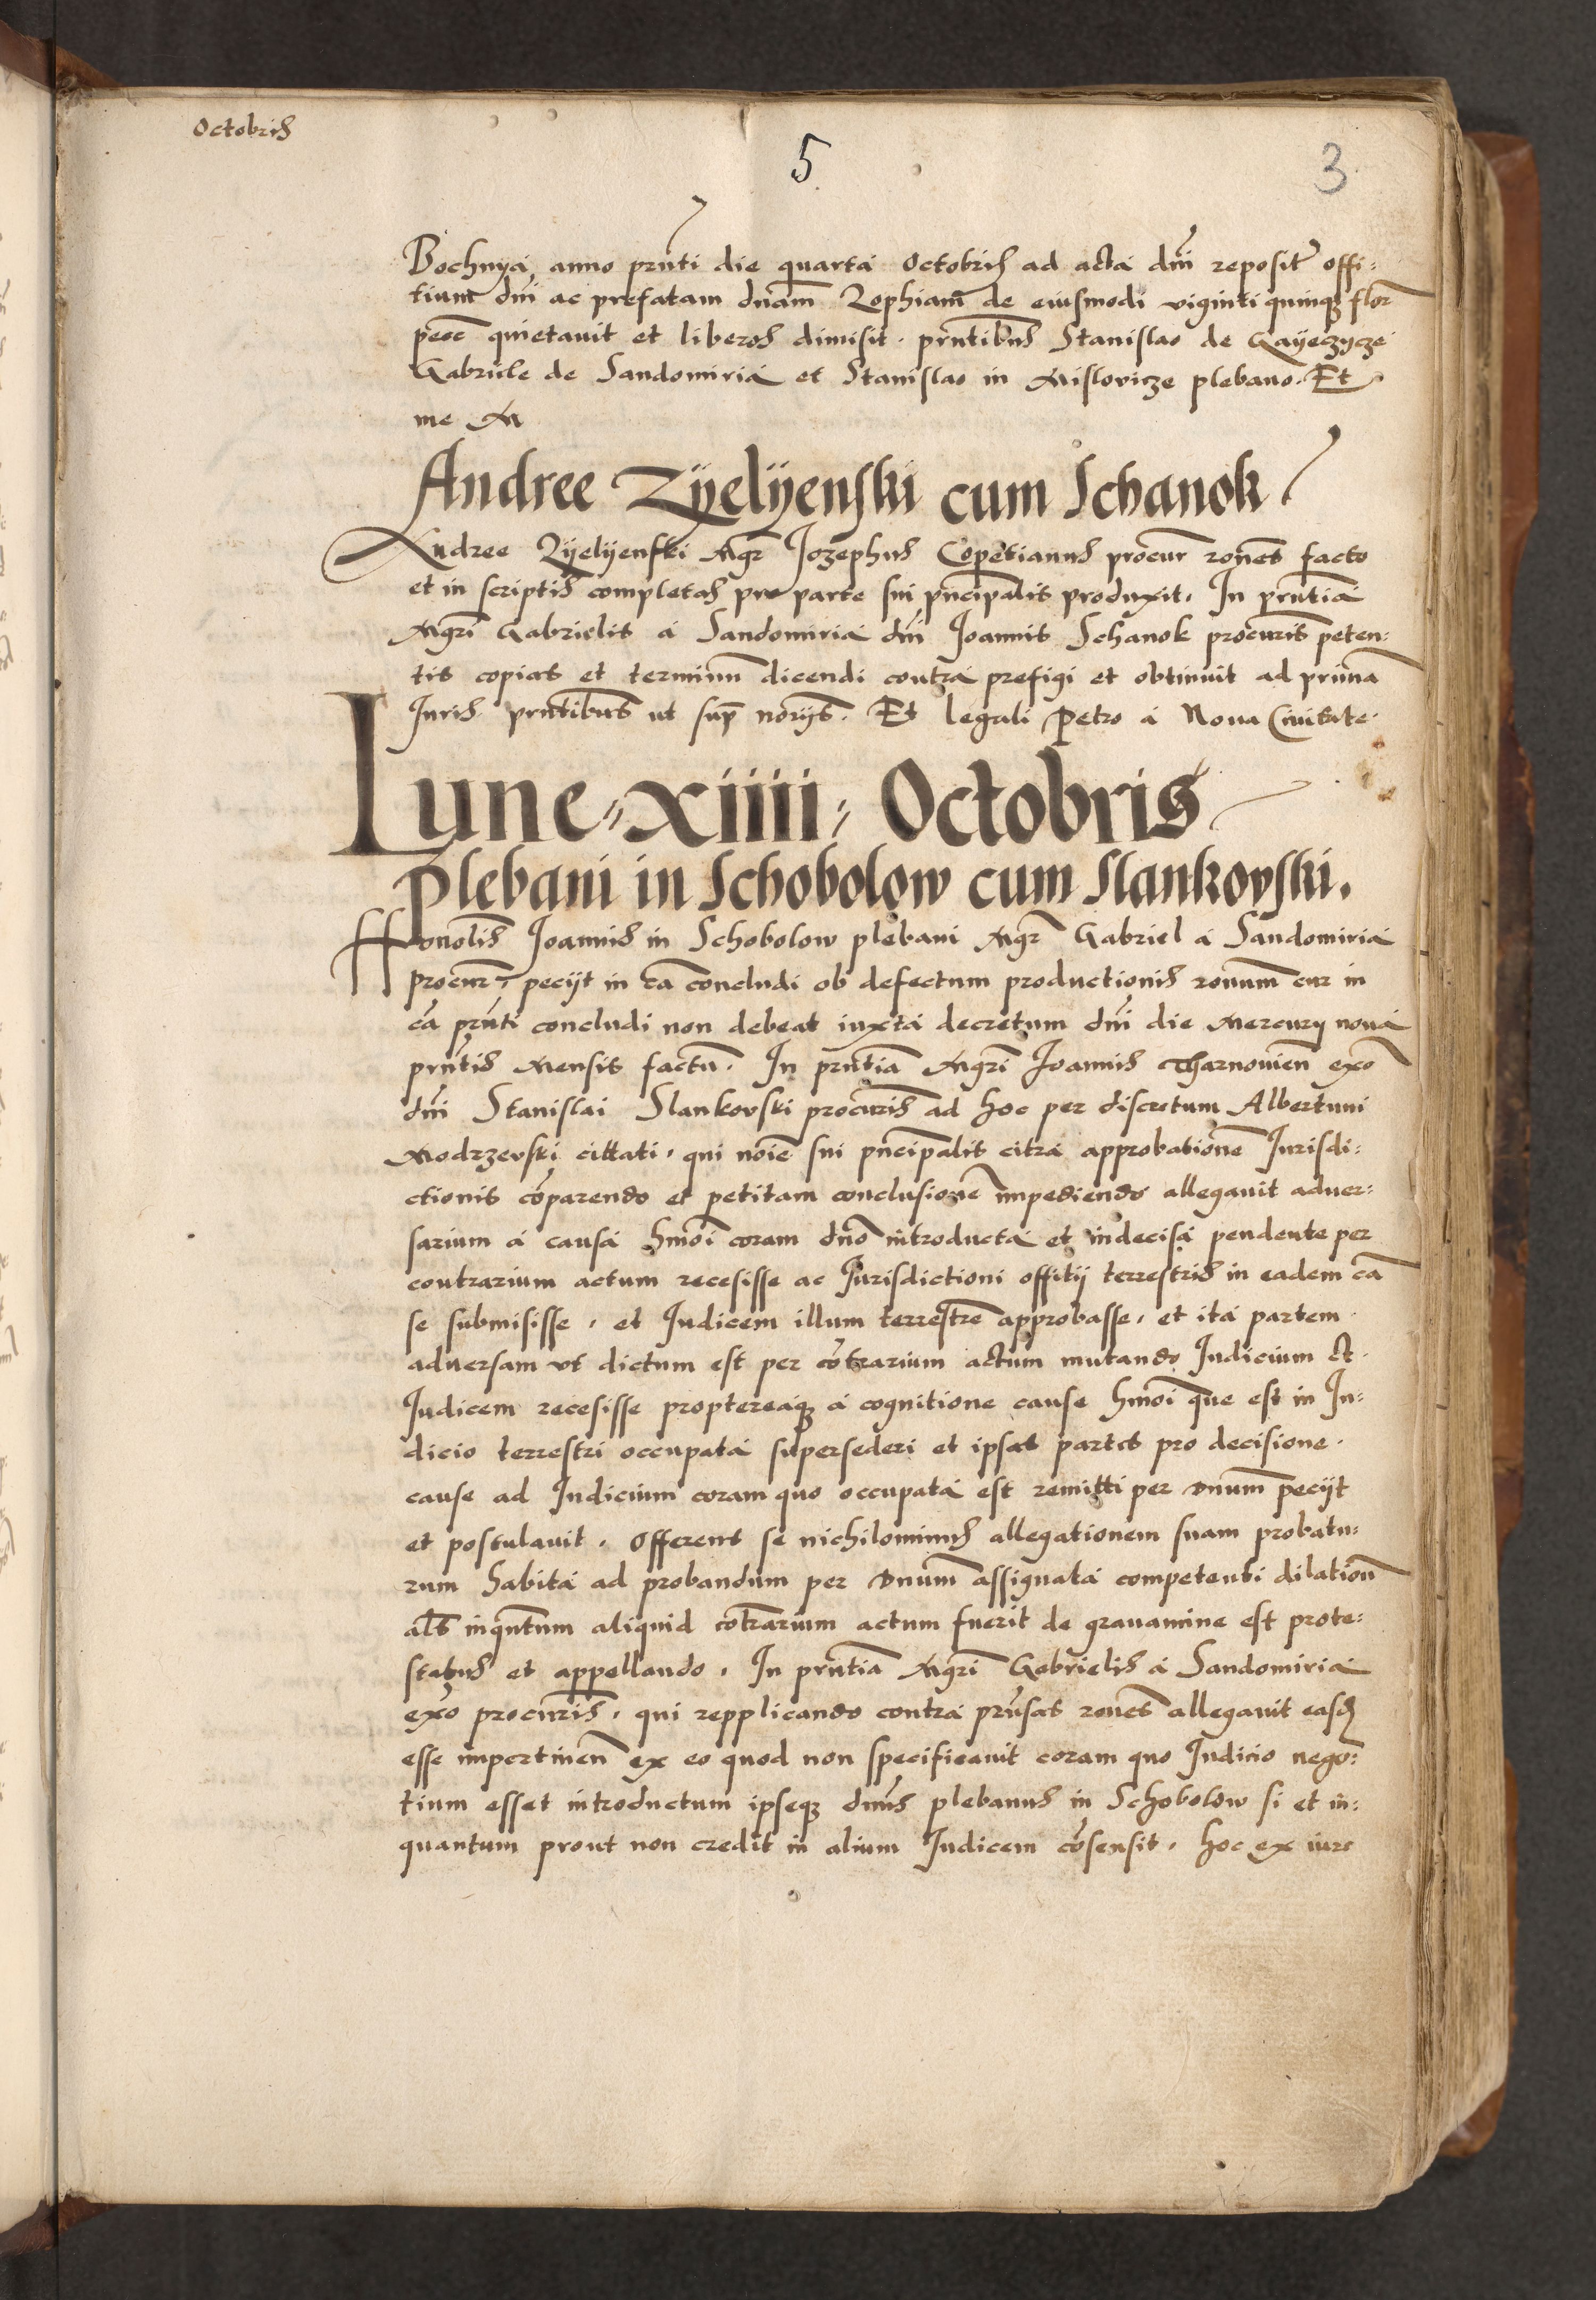 Octobris
5
3
Bochnya, anno prnti die quarta Octobris ad acta dni reposit offi:
tium dni ac prefatam dnam Zophiam de eiusmodi viginti quinqz flor
pecc quietavit et liberos dimisit. prntibus Stanislao de Gayeczycze
Gabriele de Sandomiria et Stanislao in Mislovicze plebano. Et
me M
Andree Zÿelÿenski cum Schanok
Andree Zÿelÿenski Mgr Jozephus Copetianus procur rones facto
et in scriptis completas pro parte sui pncipalis produxit. In prntia
Mgri Gabrielis a Sandomiria dni Joannis Schanok procuris peten:
tis copias et terminum dicendi contra prefigi et obtinuit ad prima
Juris prntibus ut sup norijs. Et legali Petro a Nova Civitate.
Lune xiiii Octobris
Plebani in Schobolow cum Slankovski.
Honolis Joannis in Schobolow plebani Mgr Gabriel a Sandomiria
procur, pecijt in ca concludi ob defectum productionis ronum cur in
ca prnti concludi non debeat iuxta decretum dni die Mercurij nona
prntis Mensis factu. In prntia Mgri Joannis Tharnovien exo
dni Stanislai Slankovski procuris ad hoc per discretum Albertum
Modrzevski cittati, qui noie sui pncipalis citra approbatione Jurisdi:
ctionis coparendo et petitam conclusione impediendo allegavit adver:
sarium a causa hmoi coram dno introducta et indecisa pendente per
contrarium actum recesisse ac Jurisdictioni offitij terrestris in eadem ca
se submisisse, et Judicem illum terrestre approbasse, et ita partem
adversam ut dictum est per cotrarium actum mutando Judicium et
Judicem recesisse proptereaqz a cognitione cause hmoi que est in Ju:
dicio terrestri occupata supersederi et ipsas partes pro decisione
cause ad Judicium coram quo occupata est remitti per dnum pecijt
et postulavit. Offerens se nichilominus allegationem suam probatu:
rum habita ad probandum per dnum assignata competenti dilation
als inqntum aliquid cotrarium actum fuerit de gravamine est prote:
status et appellando. In prntia Mgri Gabrielis a Sandomiria
exo procuris, qui repplicando contra prnsas rones allegavit easd
esse impertinen ex eo quod non specificavit coram quo Judicio nego:
tium esset introductum ipseqz dnus plebanus in Schobolow si et in:
quantum prout non credit in alium Judicem cosensit, hoc ex iure